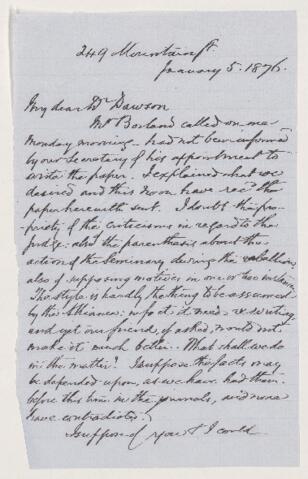 249 Mountain St
January 5. 1876.
My dear Dr Dawson
Mr Borland called on me
Monday morning - had not been informed
by our Secretary of his appointment to
write the paper. I explained what we
desired and this noon have recd the
paper herewith sent. I doubt the pro-
priety of the criticisms in regard to the
judge: also the parenthesis about the
action of the Seminary during the rebellion
also of supposing motives in one or two instances
The style is hardly the thing to be assumed
by the Alliance: in fact it needs rewriting
and yet our friend, if asked, would not
make it much better. What shall we do
in the matter? I suppose the facts may
be depended upon, as we have had them
before this time in the journals, and none
have contradicted.
I suppose if you & I could